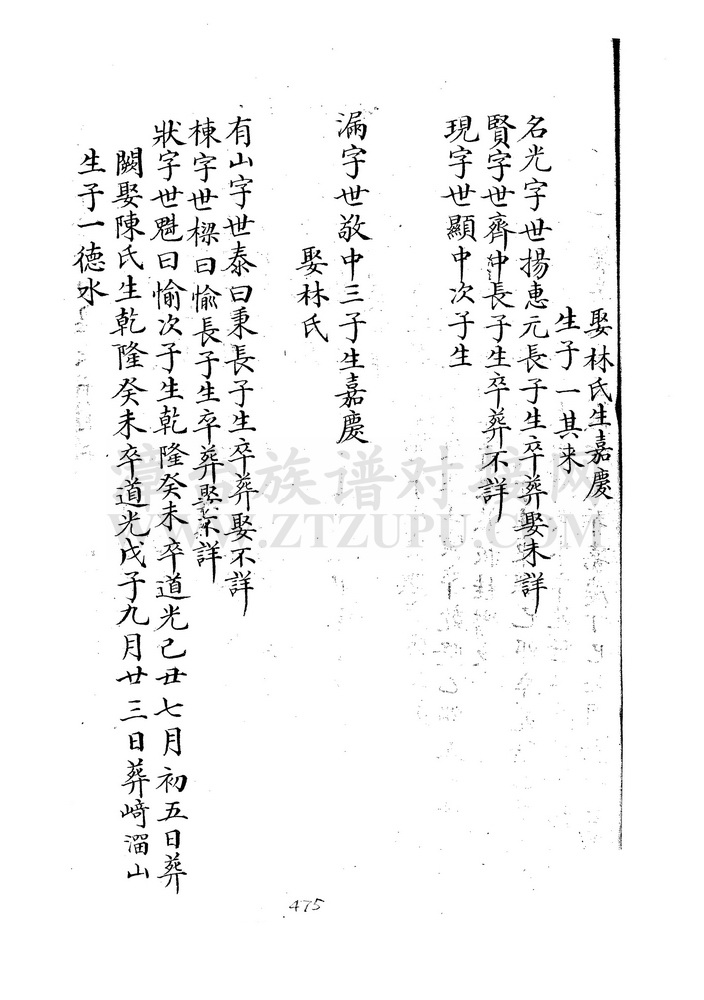 娶林氏生嘉慶
生子一其来
名光字世揚惠元長子生卒葬娶未詳
賢字世齊中長子生卒葬不詳
現字世顯中次子生
漏字世敬中三子生嘉慶
娶林氏
有山字世泰曰秉長子生卒葬娶不詳
棟字世樑曰愉長子生卒葬娶不詳
狀字世魁曰愉次子生乾隆癸未卒道光己丑七月初五日葬
闕娶陳氏生乾隆癸未卒道光戊子九月廿三日葬崎溜山
生子一德水
475
族谱对接网
WWW.ZTZUPU.COM